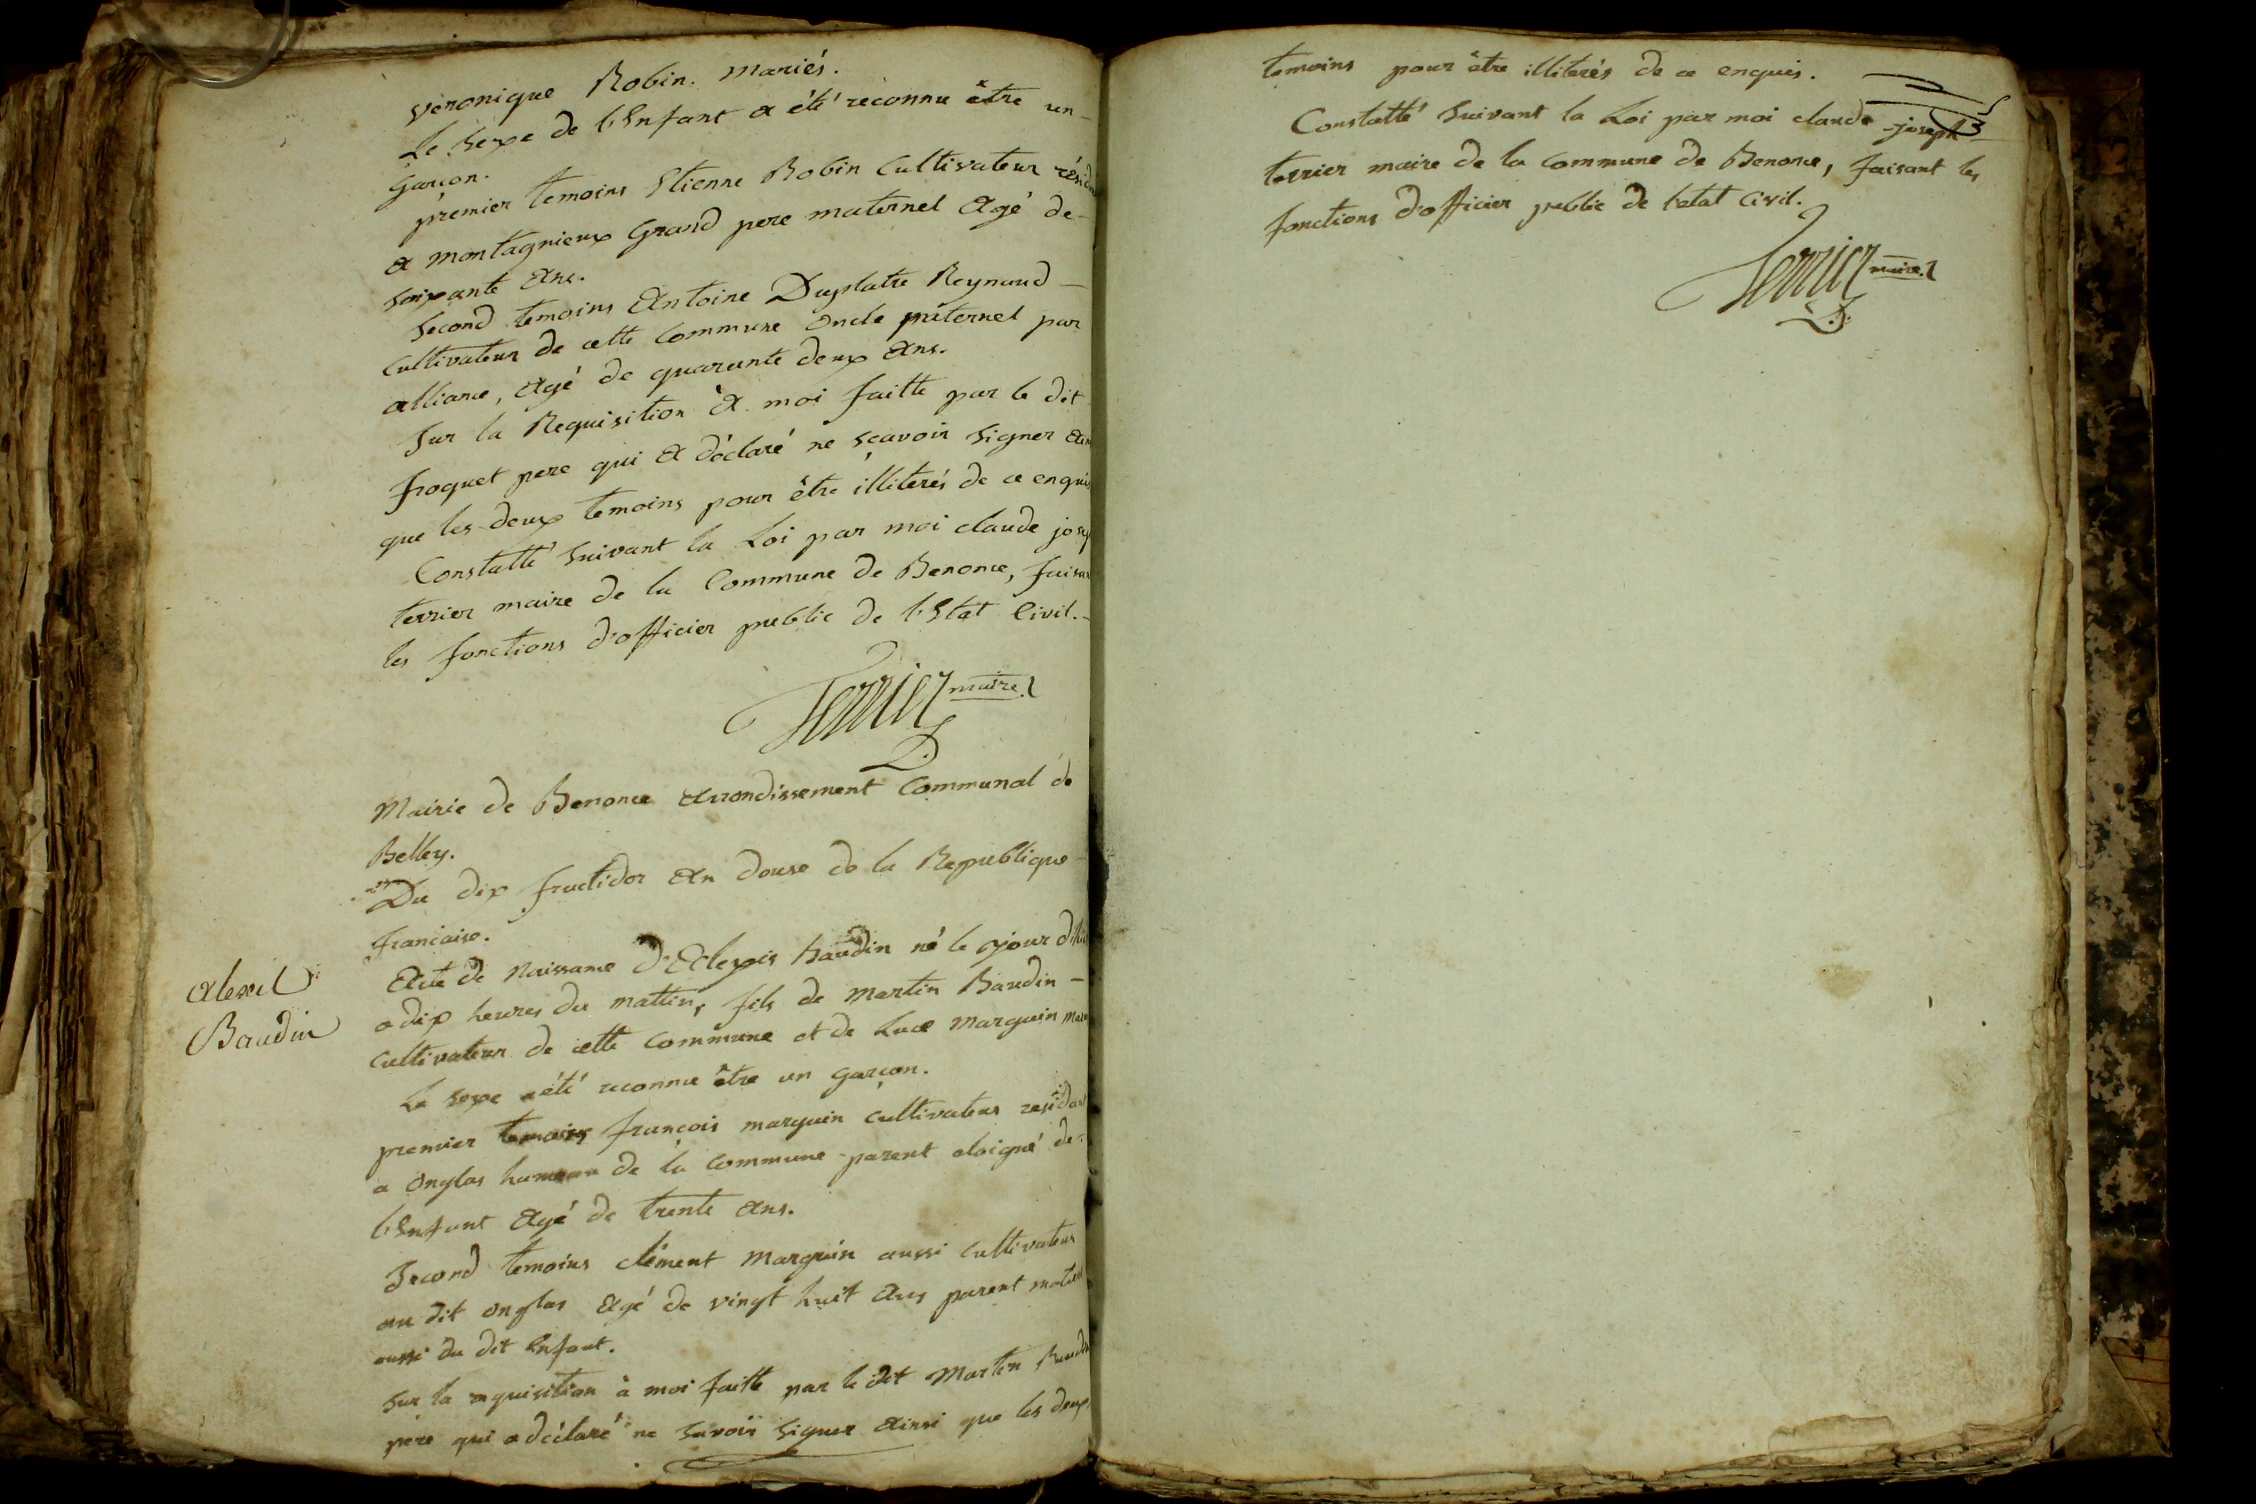 veronique Robin. mariés.
Le sexe de l'Enfant a été reconnu être un
Garcon.
premier temoins Etienne Robin Cultivateur
a montagnieux Grand pere maternel Agé de
soixante Ans.
Second temoins Antoine Duplatre Reynaud
Cultivateur de cette Commune oncle paternel par
alliance, Agé de quarante deux Ans.
Sur la Requisition à moi faitte par le dit
froquet pere qui a déclaré ne scavoir signer
que les deux temoins pour être illiterés de ce enquis
Constatté suivant la Loi par moi claude
terrier maire de la Commune de Benonce, faisant
les fonctions d'officier public de l'Etat Civil.
Terrier maire
Mairie de Benonce Arrondissement Communal de
Belley.
Du dix fructidor An douse de la Republique
francaise.
Alexis
Baudin
Acte de Naissance d'Alexis Baudin né le jour
a dix heures du mattin, fils de Martin Baudin
Cultivateur de cette Commune et de Luce Marguin
Le sexe a été reconnu être un garcon.
premier temoins francois marguin cultivateur residant
a onglas hameau de la Commune parent eloigné de
l'Enfant Agé de trente Ans.
Second temoins clément Marguin aussi Cultivateur
au dit onglas Agé de vingt huit Ans parent
aussi du dit Enfant.
Sur la requisition à moi faitte par le dit Martin Baudin
pere qui a déclaré ne savoir signer Ainsi que les deux
temoins pour être illiterés de ce enquis.
Constatté suivant la Loi par moi claude joseph
terrier maire de la Commune de Benonce, faisant les
fonctions d'officier public de l'etat Civil.
Terrier maire